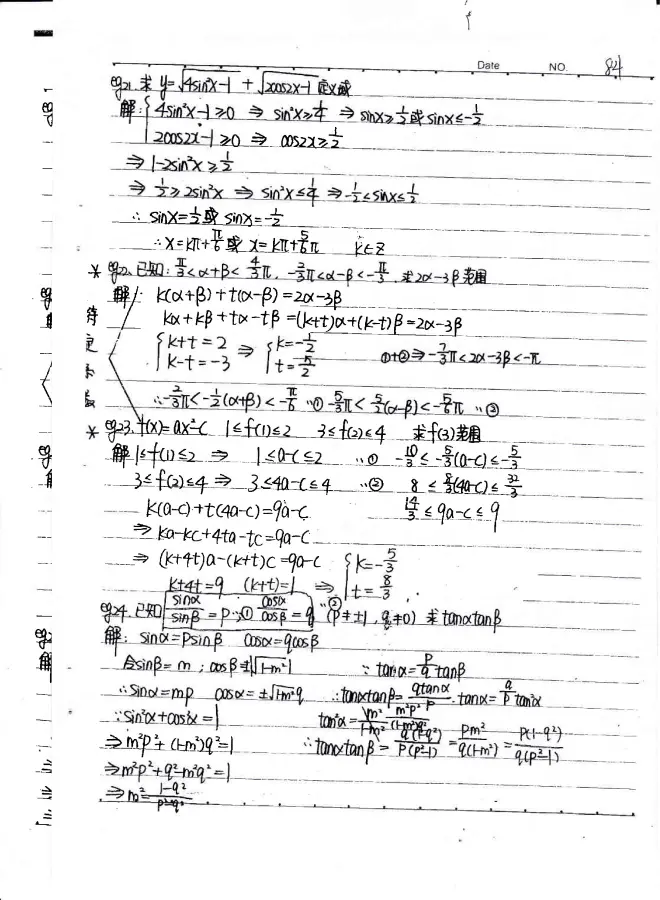 Date NO. 84
eg21. 求 y=√(4sin²x-1) + √(2cos2x-1) 定义域
解: { 4sin²x-1≥0 ⇒ sin²x≥1/4 ⇒ sinx≥1/2 或 sinx≤-1/2
2cos2x-1≥0 ⇒ cos2x≥1/2
⇒ 1-2sin²x≥1/2
⇒ 1/2≥2sin²x ⇒ sin²x≤1/4 ⇒ -1/2≤sinx≤1/2
∴ sinx=1/2 或 sinx=-1/2
∴ x=kπ+π/6 或 x=kπ+5/6π k∈Z
* eg22. 已知: π/3<α+β<4/3π, -2/3π<α-β<-π/3, 求2α-3β范围
解: k(α+β)+t(α-β)=2α-3β
kα+kβ+tα-tβ=(k+t)α+(k-t)β=2α-3β
{ k+t=2 k-t=-3 ⇒ { k=-1/2 t=5/2 ①+②⇒-7/3π<2α-3β<-π
待定系数
∴-2/3π<-1/2(α+β)<-π/6 ..① -5/3π<5/2(α-β)<-5/6π ..②
* eg23. f(x)=ax²-c 1≤f(1)≤2 3≤f(2)≤4 求f(3)范围
解 1≤f(1)≤2 ⇒ 1≤a-c≤2 ..① -10/3≤-5/3(a-c)≤-5/3
3≤f(2)≤4 ⇒ 3≤4a-c≤4 ..② 8≤8/3(4a-c)≤32/3
k(a-c)+t(4a-c)=9a-c 14/3≤9a-c≤9
⇒ ka-kc+4ta-tc=9a-c
⇒ (k+4t)a-(k+t)c=9a-c
k+4t=9 (k+t)=1 ⇒ { k=-5/3 t=8/3
eg24. 已知 sinα/sinβ=p ..① cosα/cosβ=q ..② (p≠±1, q≠0) 求tanαtanβ
解: sinα=psinβ cosα=qcosβ
令sinβ=m ; cosβ=±√(1-m²) ∵ tanα=p/q tanβ
∴sinα=mp cosα=±√(1-m²)q ∴tanαtanβ=qtanα/p·tanα=q/p tan²α
∵sin²α+cos²α=1 tan²α=m²p²/(1-m²)q²
⇒m²p²+(1-m²)q²=1 ∴tanαtanβ=q/p = pm²/q(1-m²) = p(1-q²)/q(p²-1)
⇒m²p²+q²-m²q²=1
⇒m²=(1-q²)/(p²-q²)